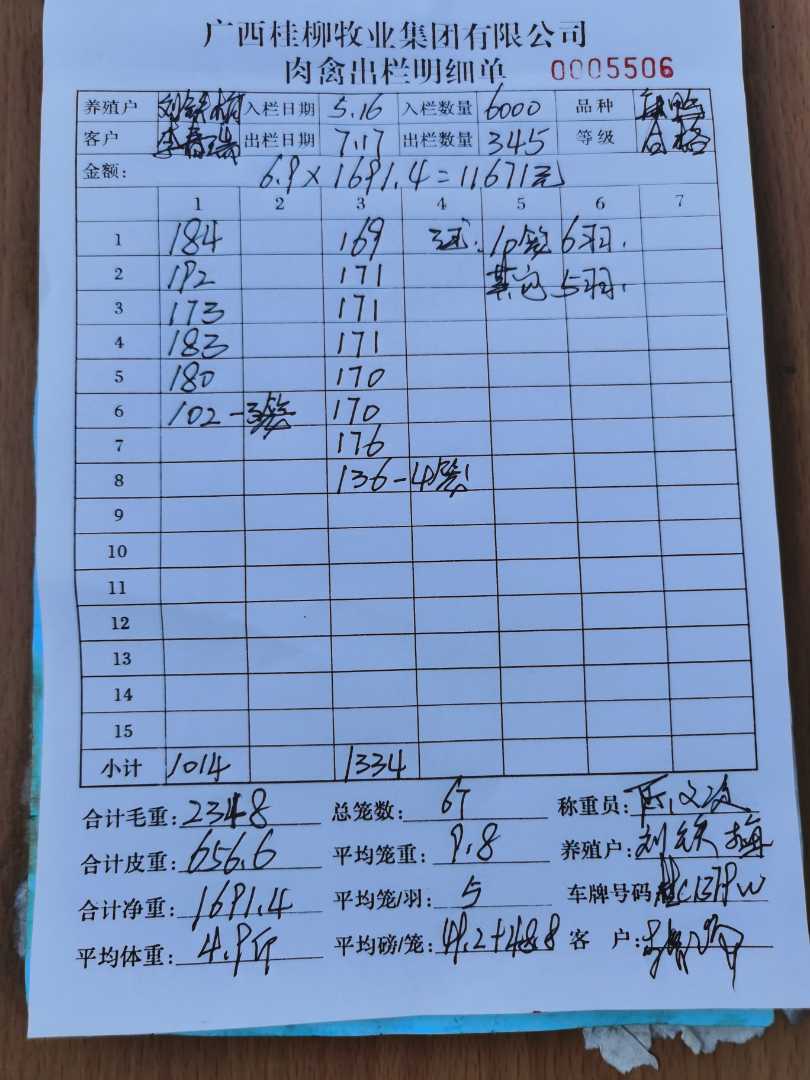 广西桂柳牧业集团有限公司
肉禽出栏明细单 0005506
养殖户 刘铁梅 入栏日期 5.16 入栏数量 6000 品种
客户 李 入栏日期 7.17 出栏数量 345 等级 合格
金额: 6.9×1691.4=11671元
1 2 3 4 5 6 7
1 184 169 10笼6羽.
2 192 171 其它5羽.
3 173 171
4 183 171
5 180 170
6 102-3笼 170
7 176
8 136-4笼
9
10
11
12
13
14
15
小计 1014 1334
合计毛重: 2348 总笼数: 67 称重员:
合计皮重: 656.6 平均笼重: 9.8 养殖户: 刘铁梅
合计净重: 1691.4 平均笼/羽: 5 车牌号码 桂C1379W
平均体重: 4.9斤 平均磅/笼: 49.2+48.8 客 户: